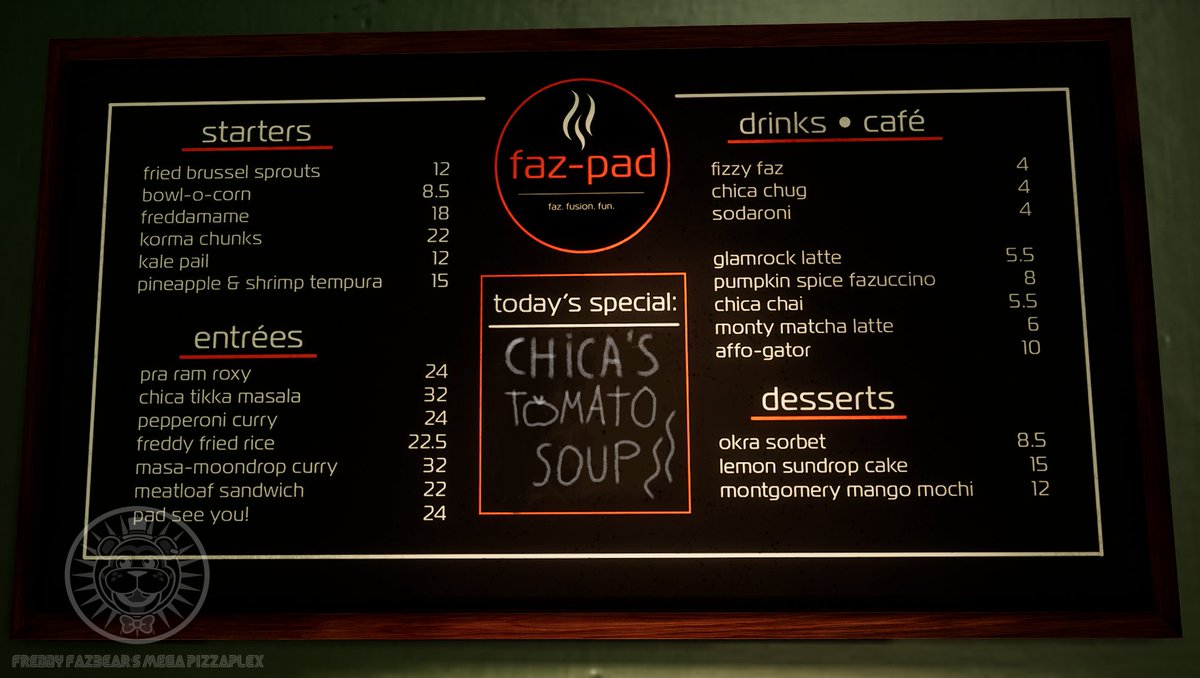 starters
fried brussel sprouts 12
bowl-o-corn 8.5
freddamame 18
korma chunks 22
kale pail 12
pineapple & shrimp tempura 15
entrées
pra ram roxy 24
chica tikka masala 32
pepperoni curry 24
freddy fried rice 22.5
masa-moondrop curry 32
meatloaf sandwich 22
pad see you! 24
faz-pad
faz. fusion. fun.
today's special:
CHiCA'S
TOMATO
SOUP
drinks • café
fizzy faz 4
chica chug 4
sodaroni 4
glamrock latte 5.5
pumpkin spice fazuccino 8
chica chai 5.5
monty matcha latte 6
affo-gator 10
desserts
okra sorbet 8.5
lemon sundrop cake 15
montgomery mango mochi 12
FREDDY FAZBEAR'S MEGA PIZZAPLEX